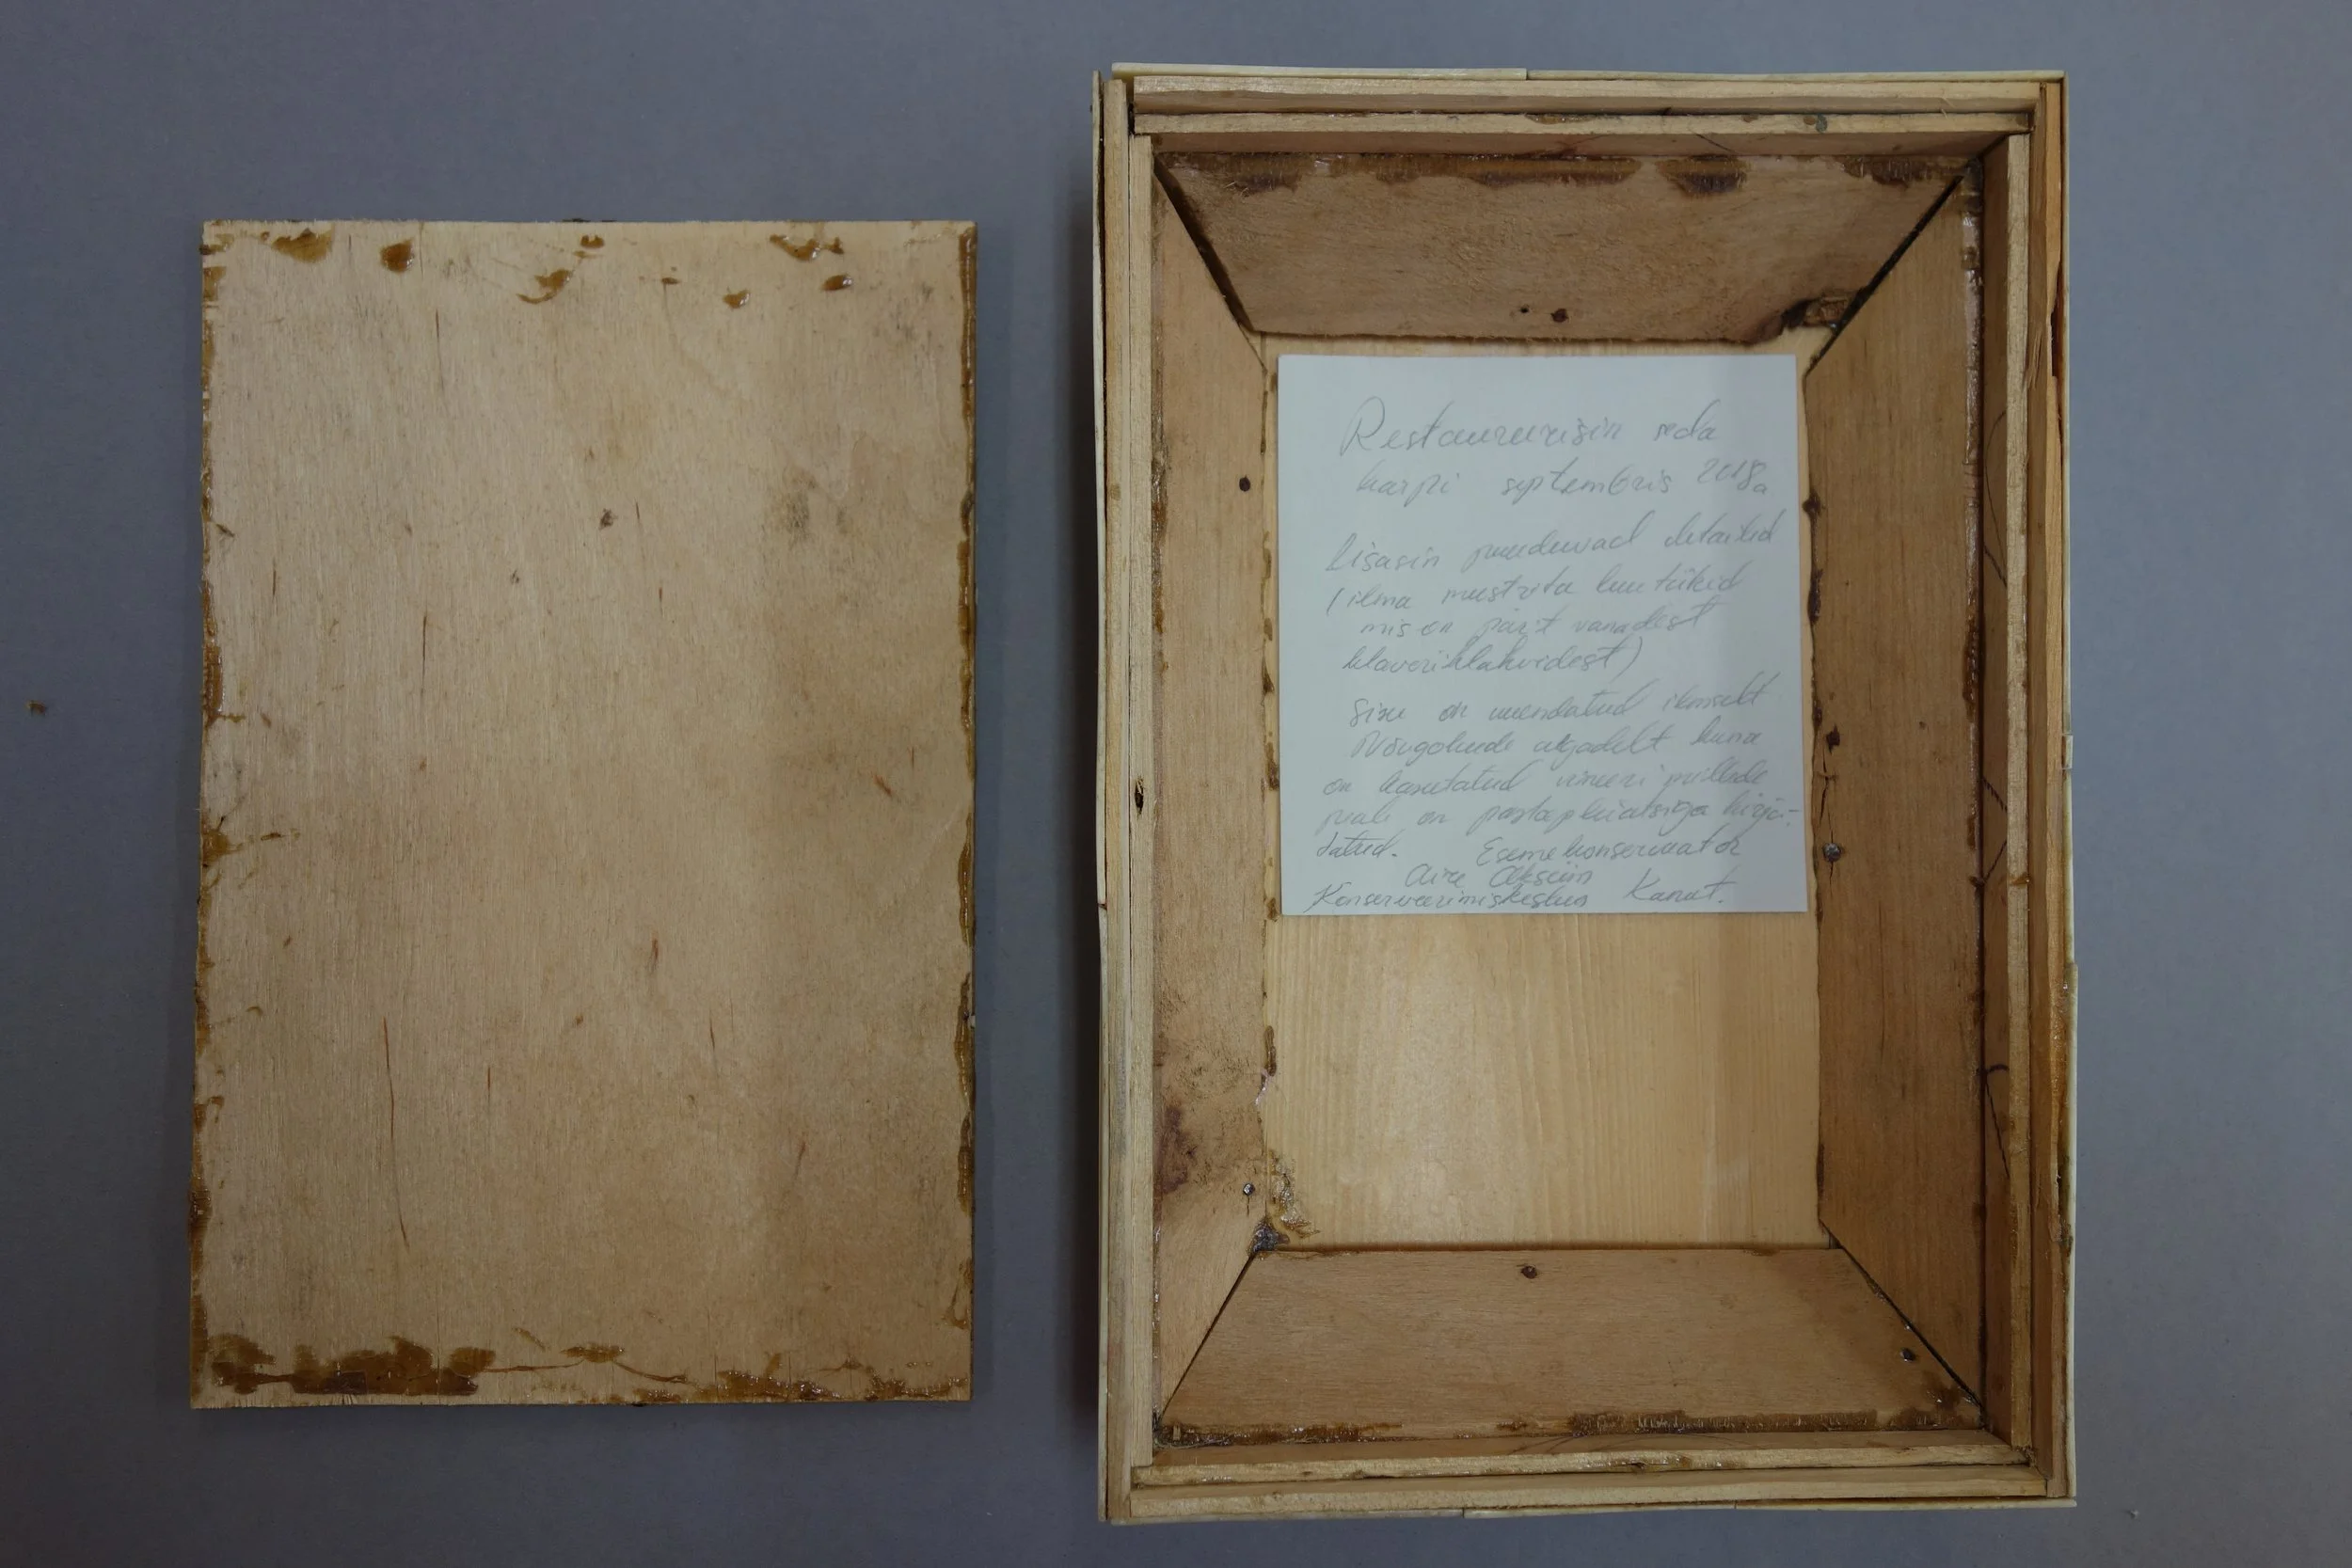 Restaureerisin seda
karpi septembris 2018a
Lisasin puuduvad detailid
(ilma mustrita luutükid
mis on pärit vanadest
klaveriklahvidest)
Sisu on uuendatud ilmselt
Nõugokude algadelt kuna
on kasutatud vineeri millede
peale on pastapliiatsiga kirju-
tatud. Esemekonservaator
Aire
Konserveerimiskeskus Kanut.